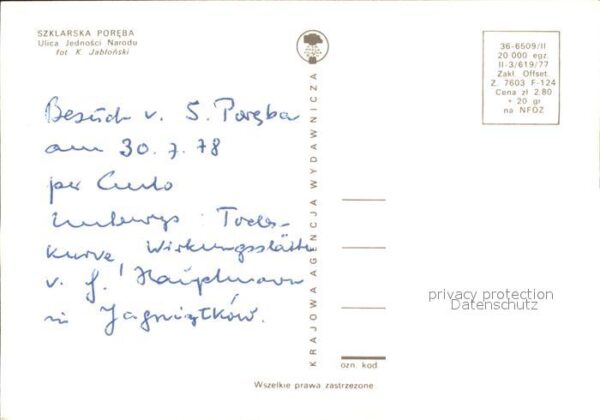 SZKLARSKA PORĘBA
Ulica Jedności Narodu
fot K. Jabłoński
36-6509/II
20 000 egz.
II-3/619/77
Zakl. Offset.
Z. 7603 F-124
Cena zł 2.80
+ 20 gr
na NFOZ
Besuch v. S. Poręba
am 30.7.78
per
unterwegs: Todes-
kurve, Wirkungsstätte
v. G. Hauptmann
in Jagniątków.
KRAJOWA AGENCJA WYDAWNICZA
privacy protection
Datenschutz
ozn. kod
Wszelkie prawa zastrzeżone